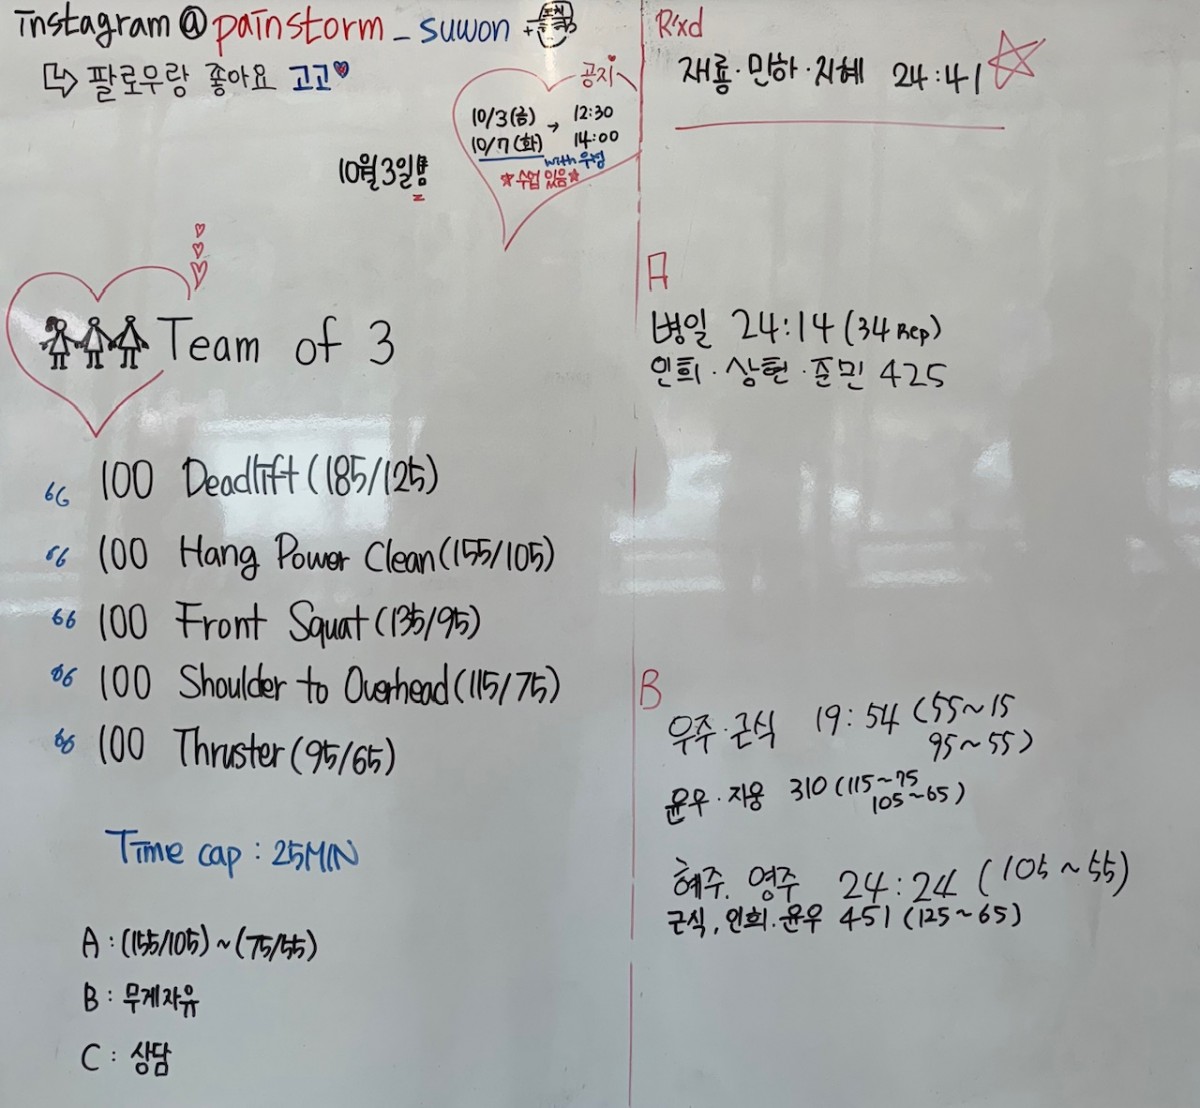 instagram @painstorm_suwon +
↳ 팔로우랑 좋아요 고고
공지
10/3(금) → 12:30
10/7(화) 14:00
with 우정
☆수업 있음☆
10월3일
Team of 3
66 100 Deadlift (185/125)
66 100 Hang Power Clean (155/105)
66 100 Front Squat (135/95)
66 100 Shoulder to Overhead (115/75)
66 100 Thruster (95/65)
Time cap : 25MIN
A : (155/105) ~ (75/55)
B : 무게자유
C : 상담
R'xd
재룡·민하·지혜 24:41
A
병일 24:14 (34 Rep)
인희·상현·준민 425
B
우주·근식 19:54 (55~15
95~55)
윤우·지웅 310 (115~75
105~65)
혜주. 영주 24:24 (105~55)
근식.인희.윤우 451 (125~65)